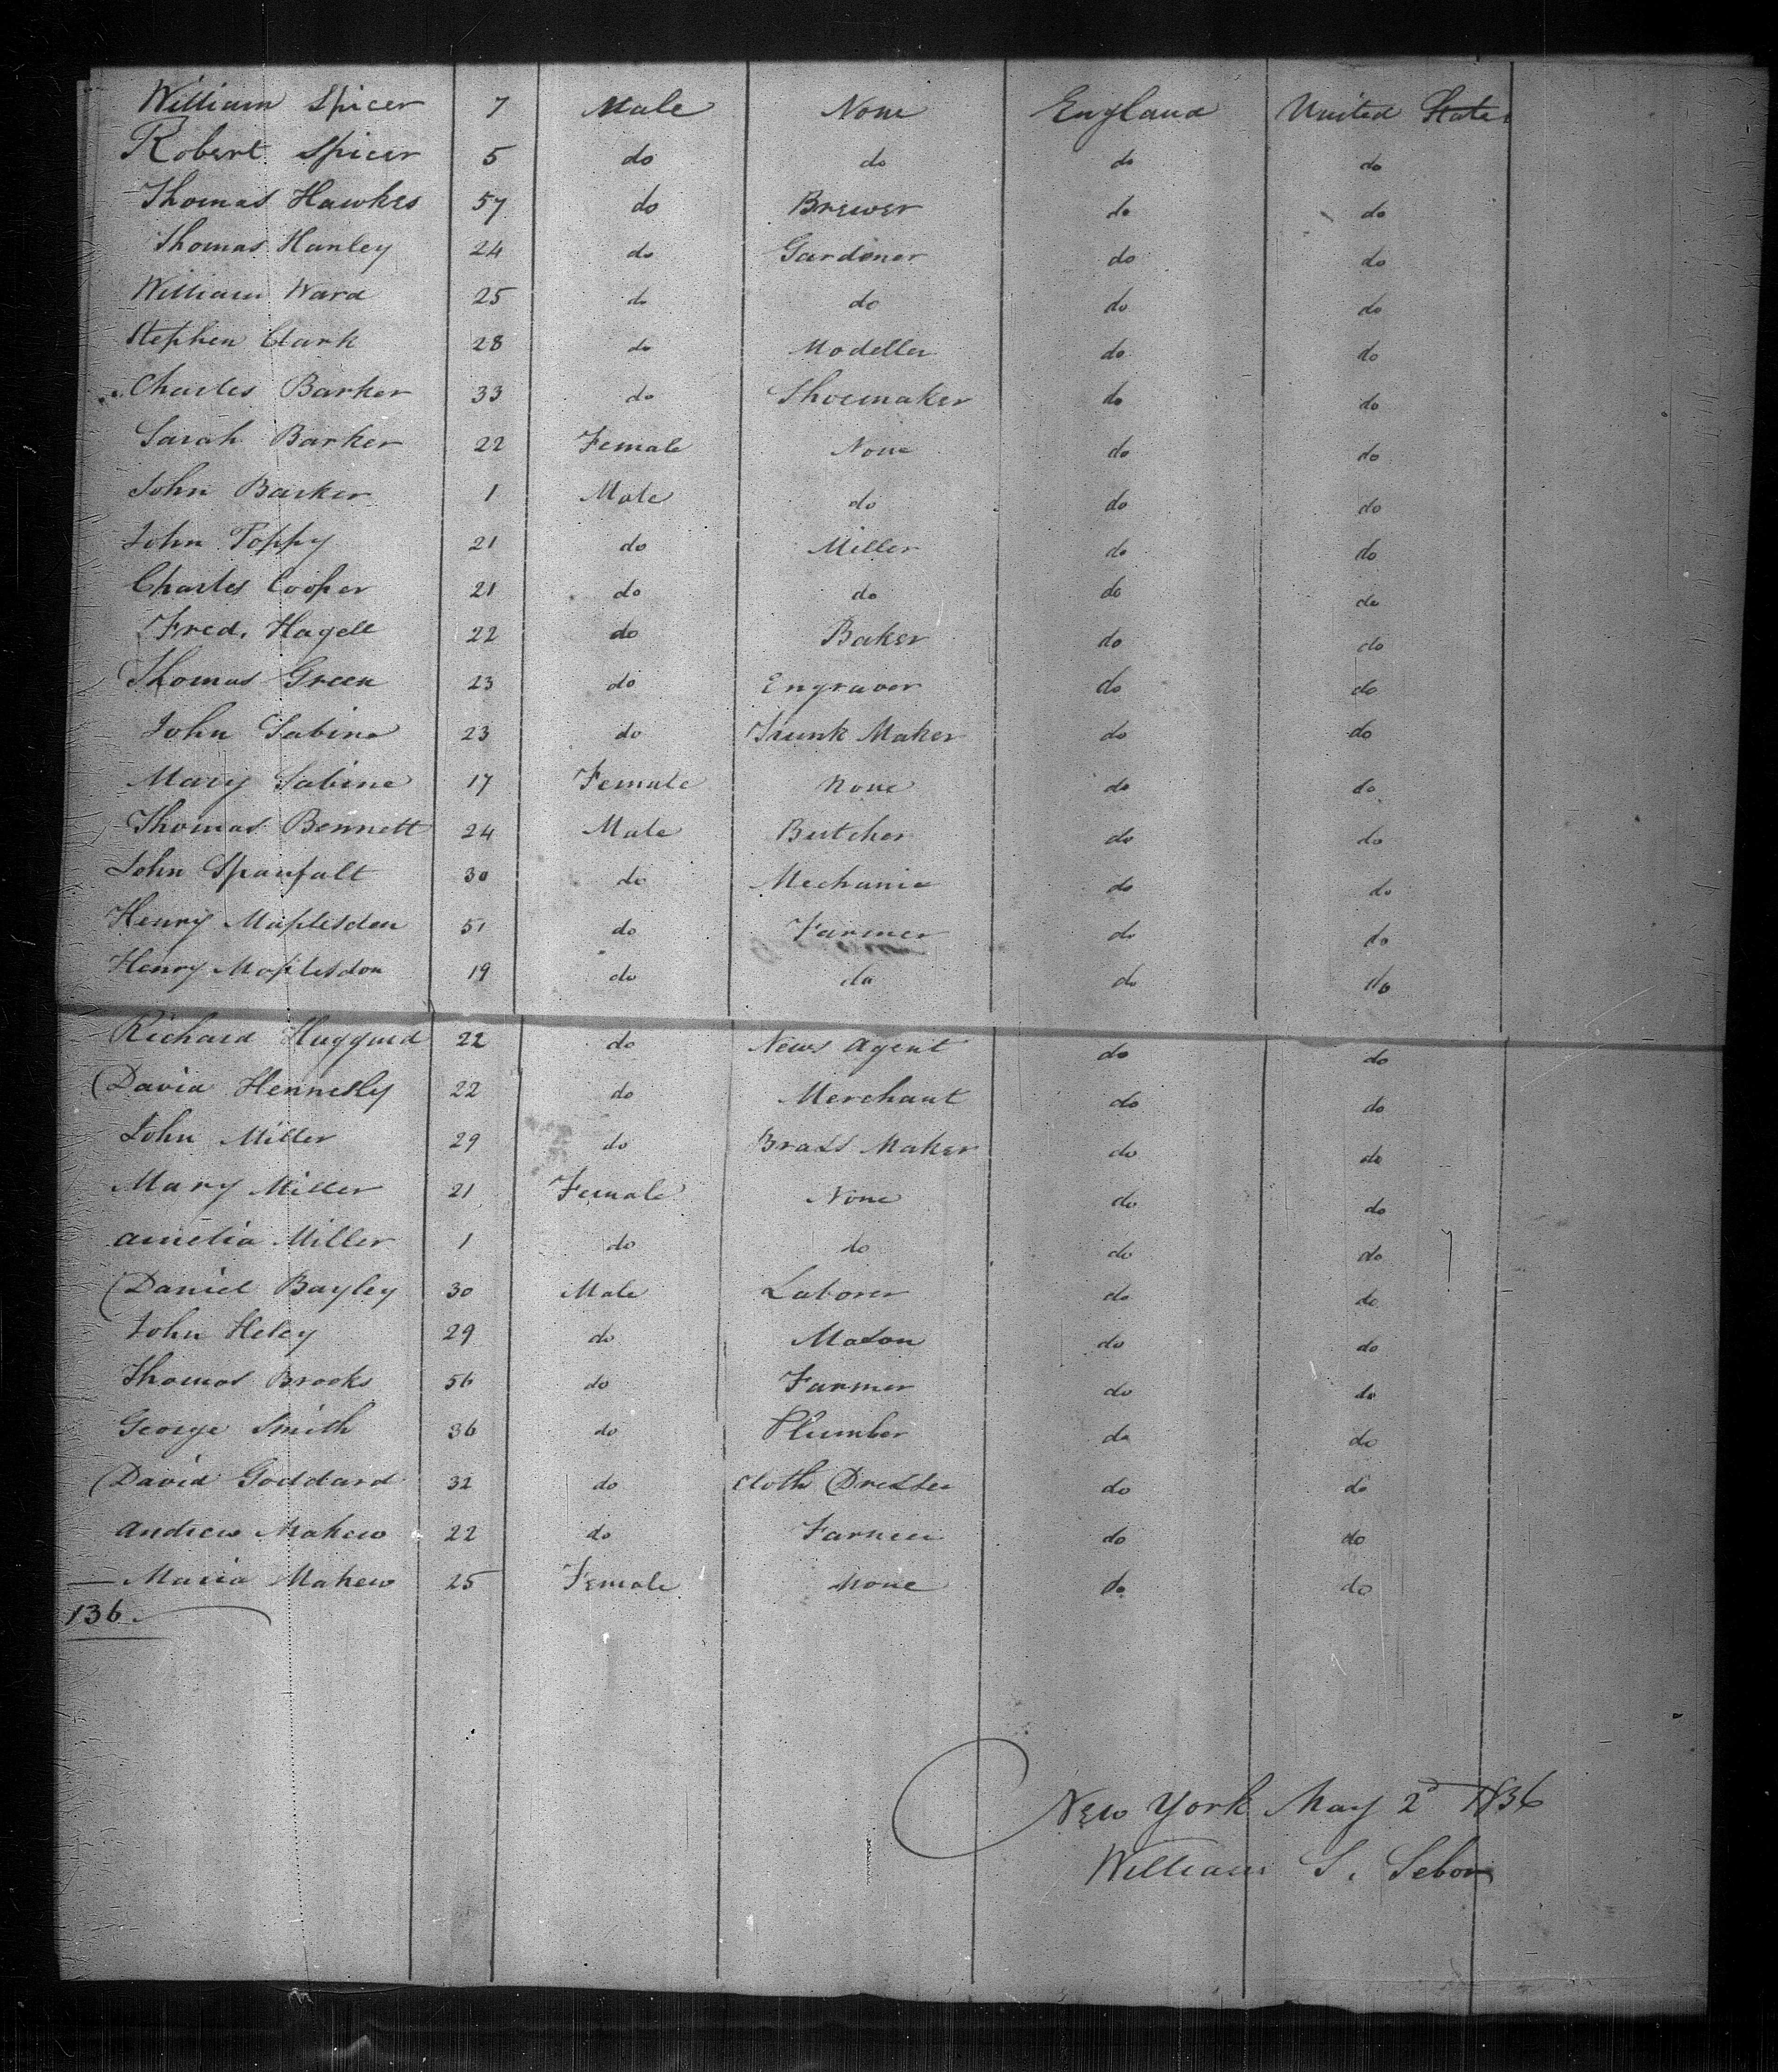 William Spicer 7 Male None England United States
Robert Spicer 5 do do do do
Thomas Hawkes 57 do Brewer do do
Thomas Hanley 24 do Gardener do do
William Ward 25 do do do do
Stephen Clark 28 do Modeller do do
Charles Barker 33 do Shoemaker do do
Sarah Barker 22 Female None do do
John Barker 1 Male do do do
John Toppy 21 do Miller do do
Charles Cooper 21 do do do do
Fred. Hagell 22 do Baker do do
Thomas Green 23 do Engraver do do
John Sabine 23 do Trunk Maker do do
Mary Sabine 17 Female None do do
Thomas Bennett 24 Male Butcher do do
John 30 do Mechanic do do
Henry Maplesden 51 do Farmer do do
Henry Maplesdon 19 do do do do
Richard Huggard 22 do News Agent do do
David Hennessy 22 do Merchant do do
John Miller 29 do Brass Maker do do
Mary Miller 21 Female None do do
Amelia Miller 1 do do do do
Daniel Bayley 30 Male Laborer do do
John Heley 29 do Mason do do
Thomas Brooks 56 do Farmer do do
George Smith 36 do Plumber do do
David Goddard 32 do Cloth Dresser do do
Andrew Mahew 22 do Farmer do do
Maria Mahew 25 Female None do do
136
New York May 2d 1836
William S. Sebor